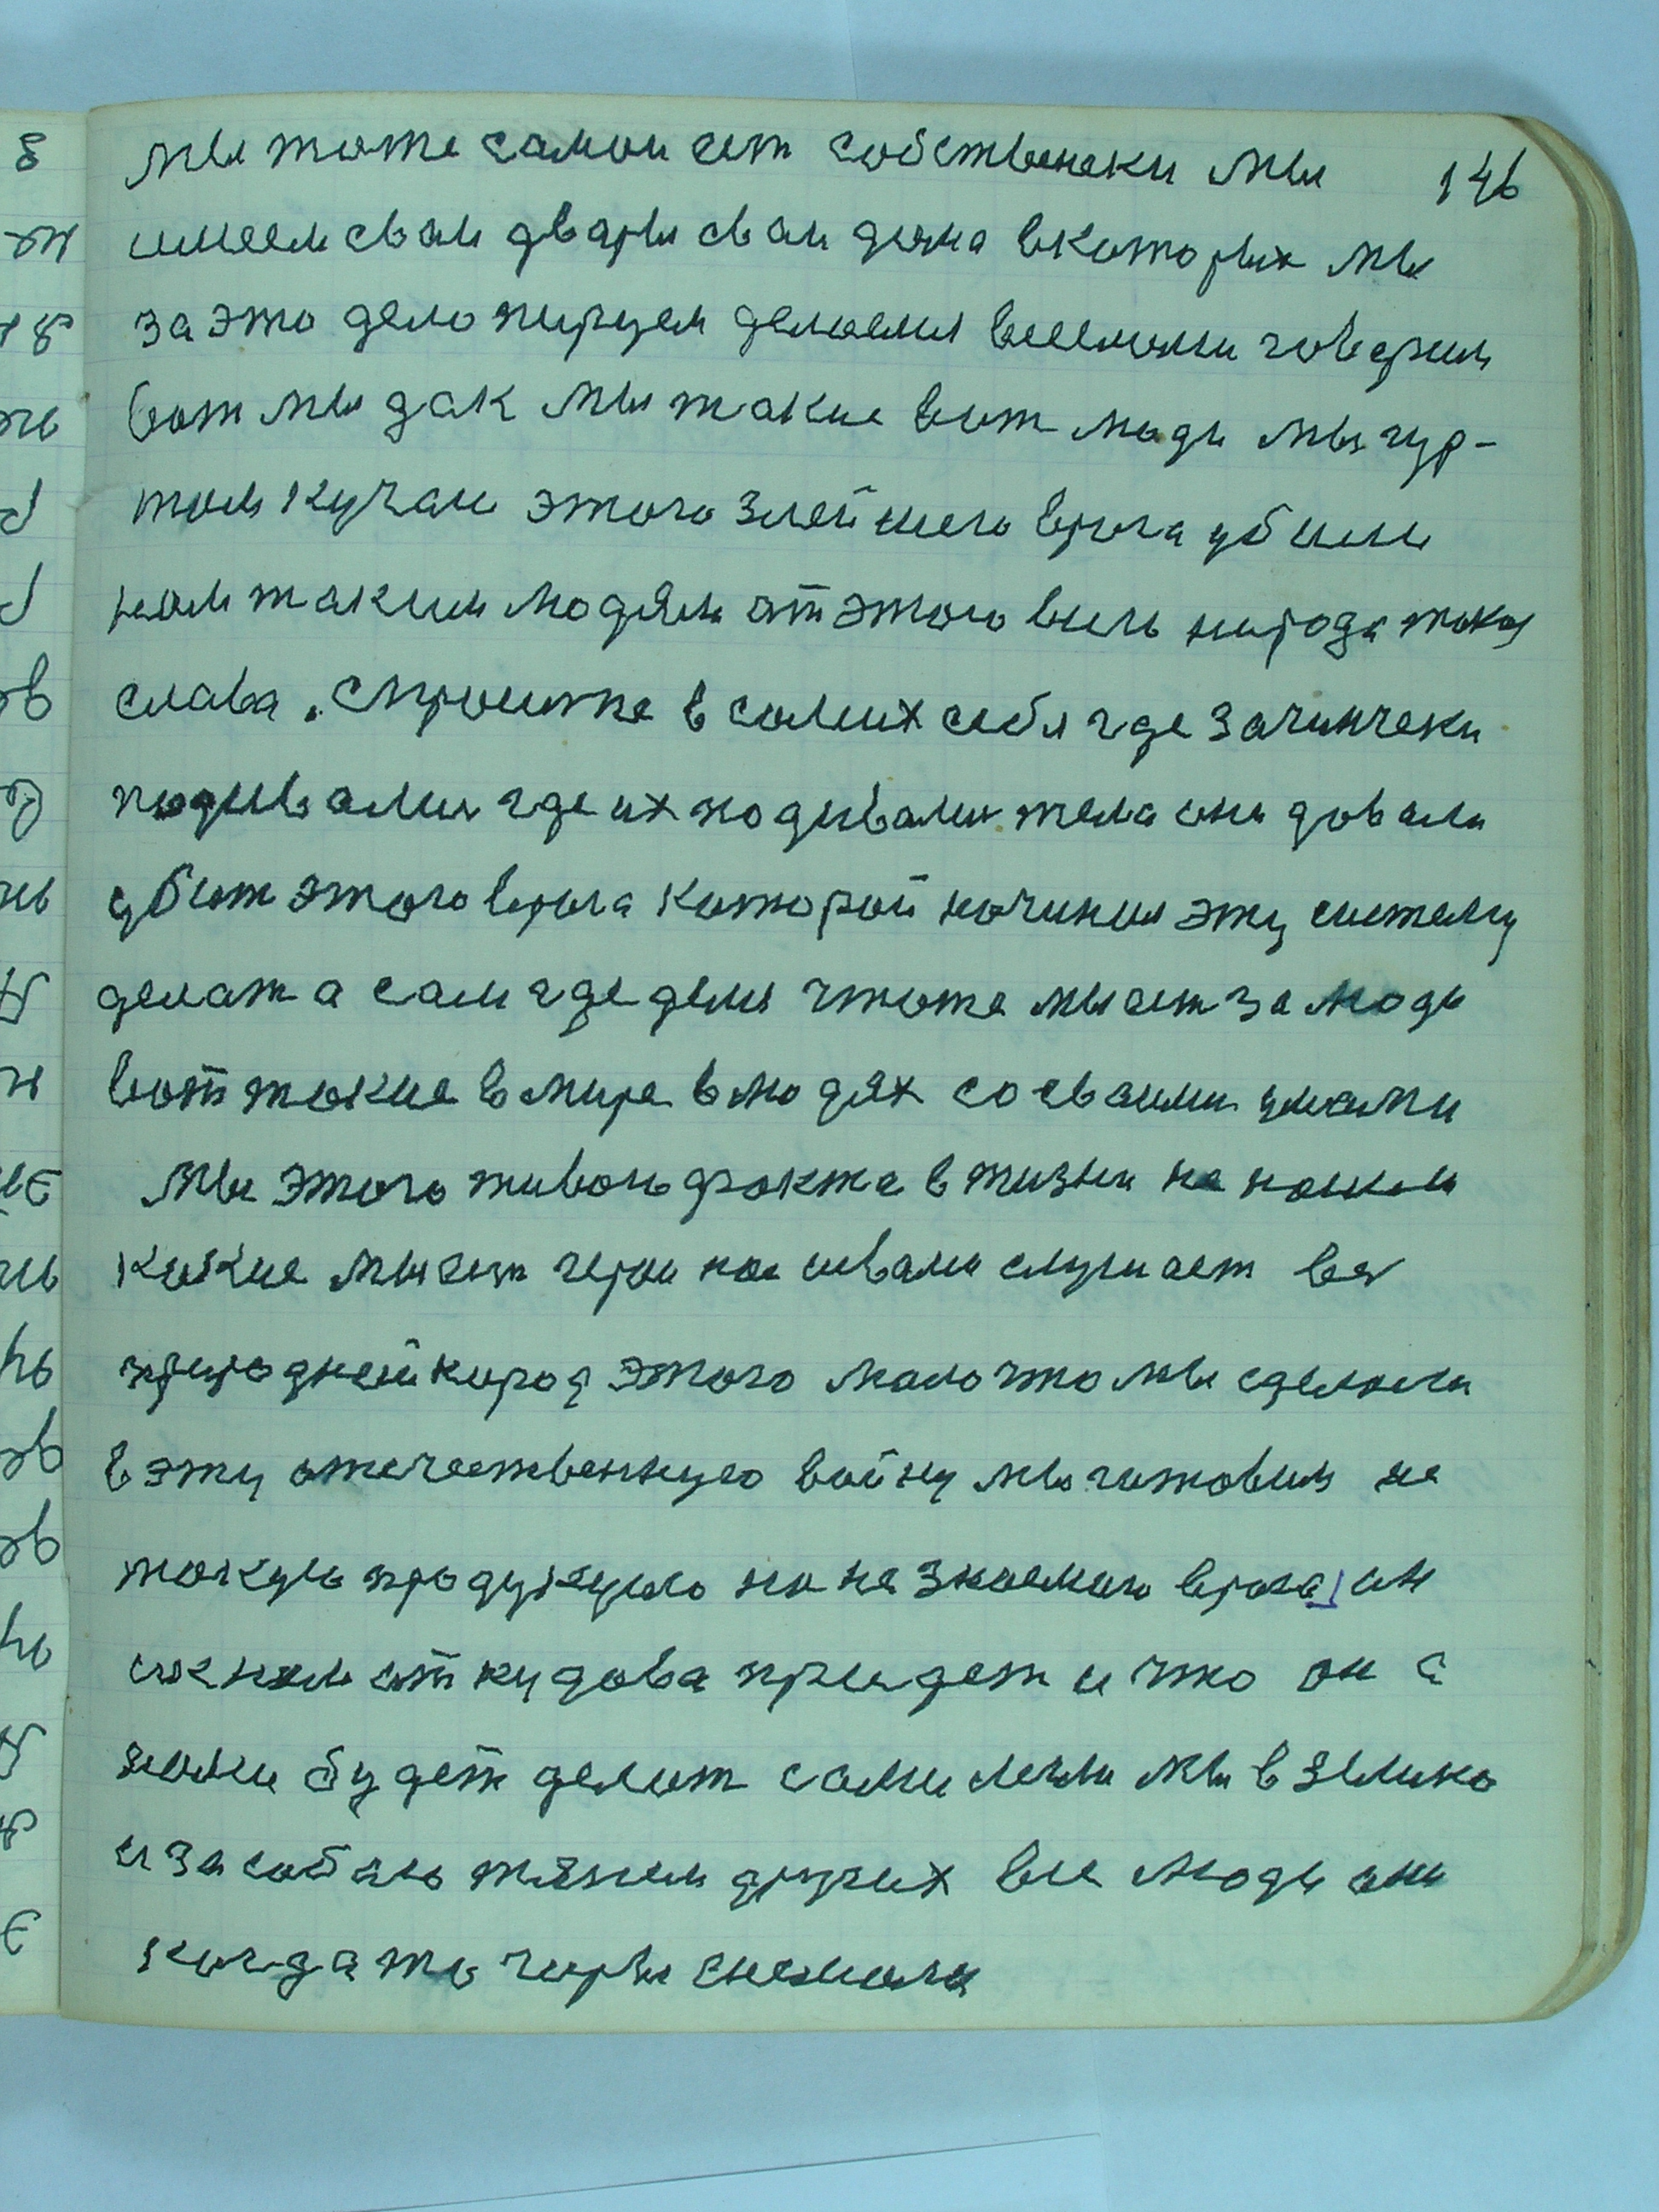 мы тоже самои ест собственеки мы 146
имеем сваи двары сваи дама вкоторых мы
за это дело пируем делаемся веселыми говерим
вот мы дак мы такие вот люди мы гур-
том кучаи этого злейшего врага убили
нам таким людям от этого виль народа така
слава. Спроситке в самих себя где зачинчеки
подивались где их подивалис тела они довали
убит этого врага которой начинал эту систему
делат а сам где делся чтоже мы ест за люди
вот такие в мире в людях со сваими умами
Мы этого живого факта в жизни не нашли
какие мы ест герои нас свами слушает вся
природней народ этого мало что мы сделали
в эту отечественную войну мы готовим не
такую продукцию на не знаемаго врага он
ик нам от кудова придет и что он с
нами будет делат сами легли мы в землю
и за собаю тянем других все люди они
когда то горы снемали